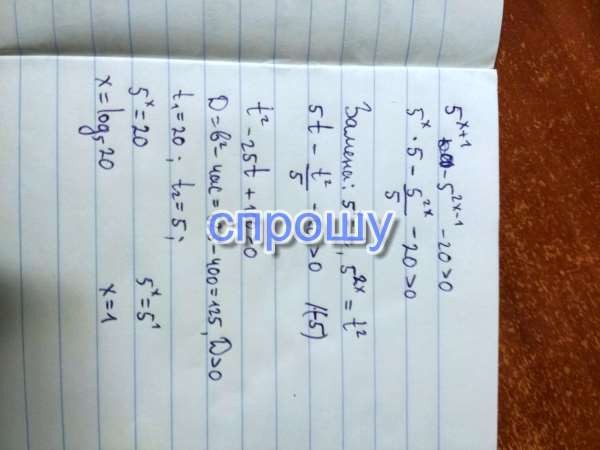 5^(x+1) - 5^(2x-1) - 20 > 0
5^x · 5 - 5^(2x)/5 - 20 > 0
Замена: 5 , 5^(2x) = t²
5t - t²/5 - > 0 /(-5)
t² - 25t + 1 0
D = b² - 4ac = - 400 = 125, D>0
t₁ = 20 ; t₂ = 5 ;
5^x = 20 5^x = 5^1
x = log₅ 20 x = 1
спрошу